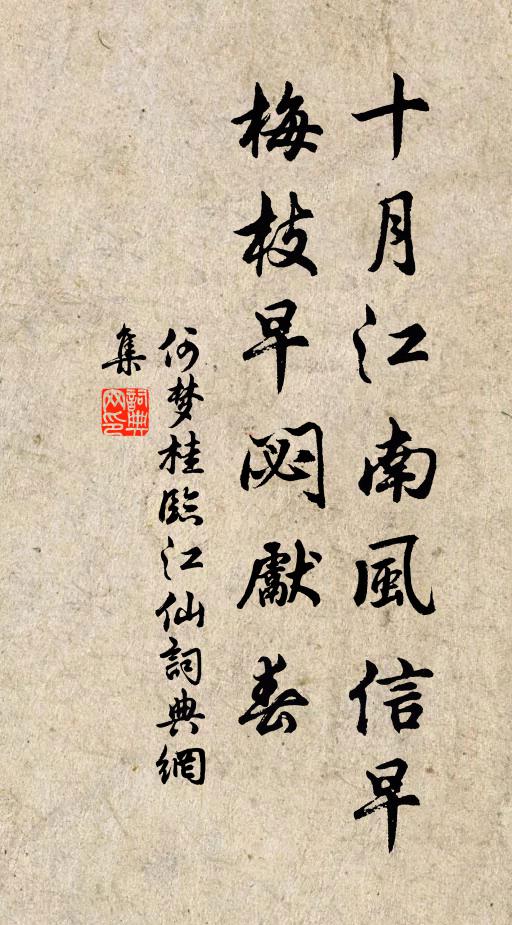 十月江南風信早
梅枝早閟獻春
何梦桂臨江仙詞典網
集
詞典
网印